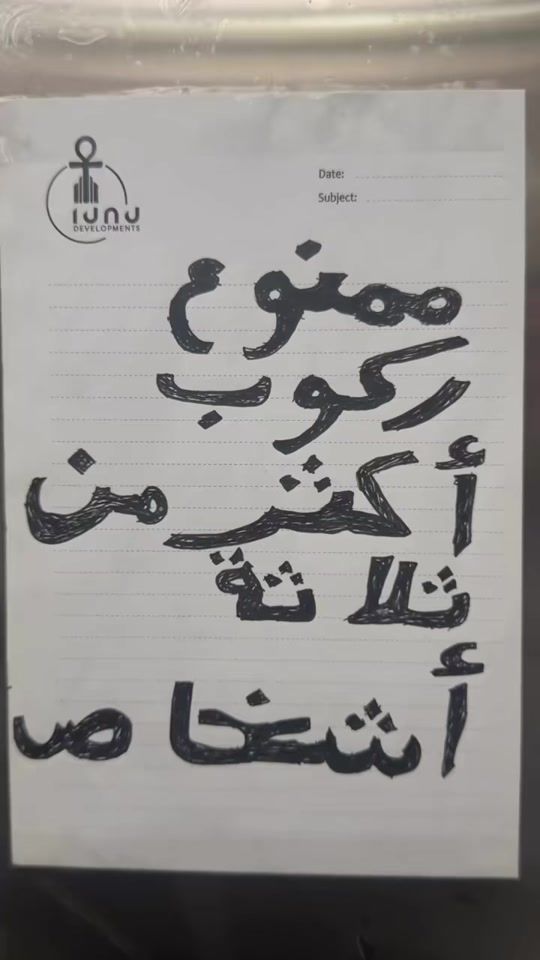 IUNU
DEVELOPMENTS
Date:
Subject:
ممنوع
ركوب
أكثر من
ثلاثة
أشخاص